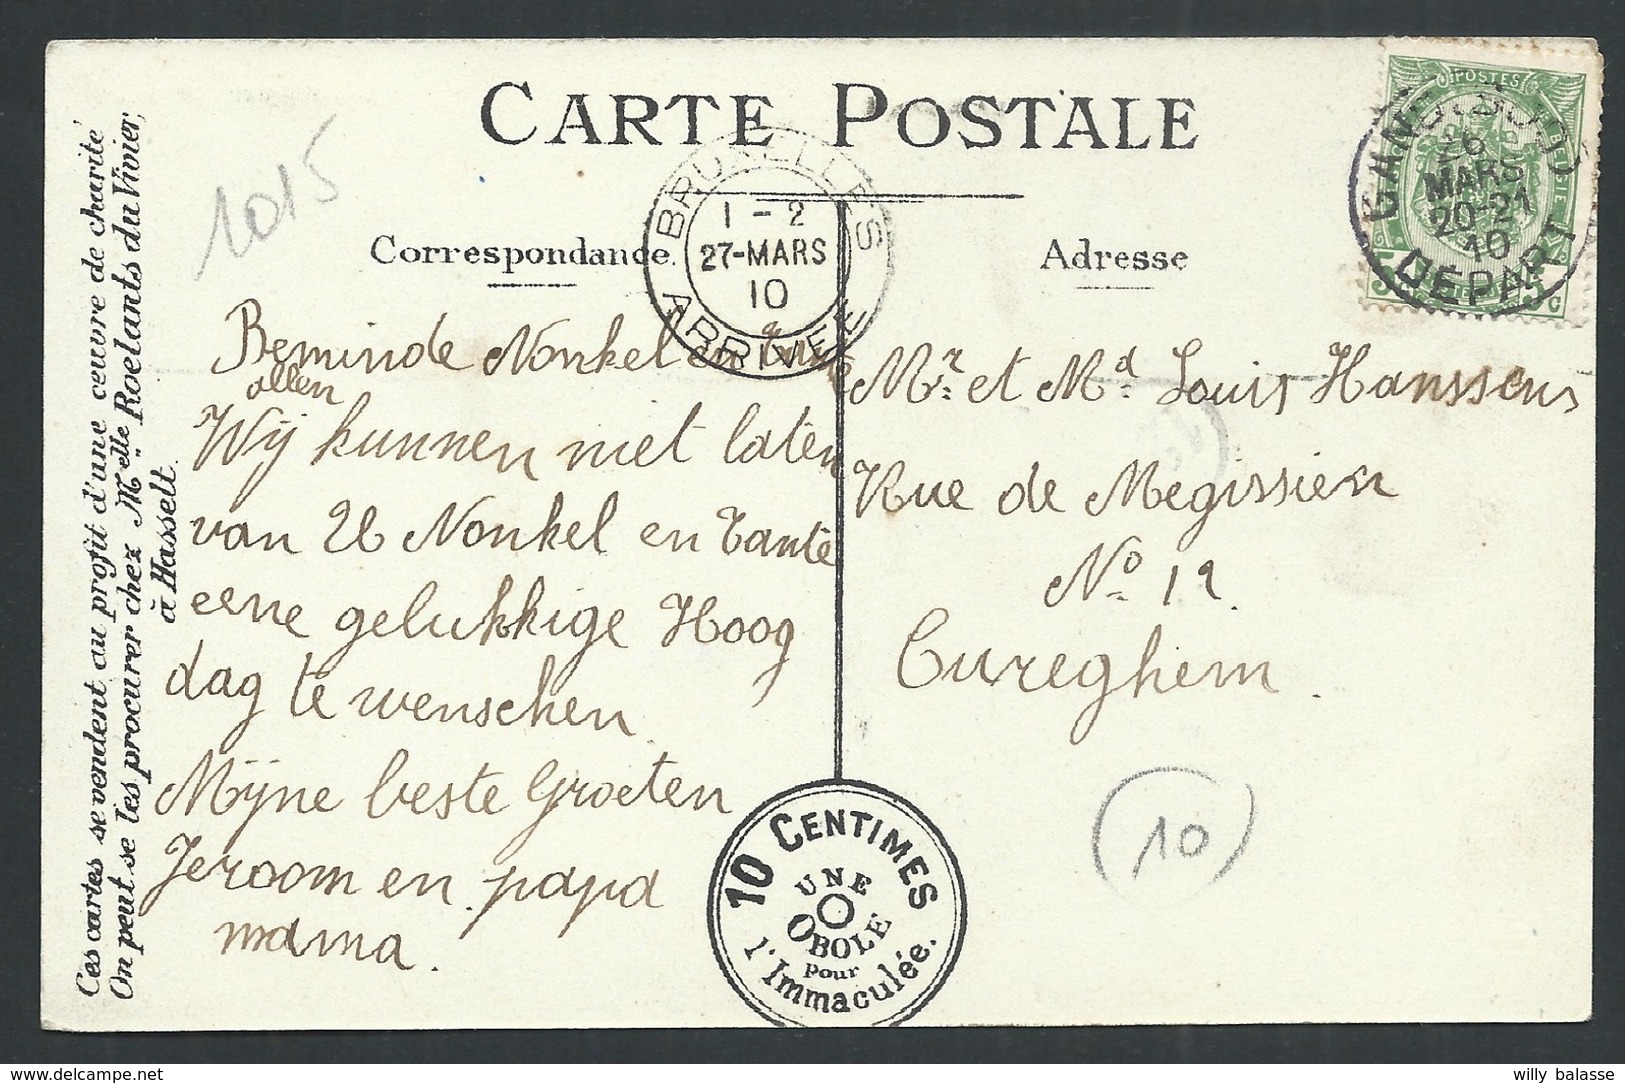 CARTE POSTALE
Correspondance.
Adresse
BRUXELLES
1-2
27-MARS
10
ARRIVÉE
26
MARS
20-21
10
DÉPART
POSTES
5 5 C
1015
Ces cartes se vendent au profit d'une œuvre de charité
On peut se les procurer chez Melle Roelants du Vivier,
à Hasselt.
Beminde Nonkel en
allen
Wij kunnen niet laten
van U Nonkel en Tante
eene gelukkige Hoog
dag te wenschen
Mijne beste Groeten
Jeroom en papa
mama.
Mr. et Md. Louis Hanssens
Rue de Megissien
No. 12.
Cureghem.
(10)
10 CENTIMES
UNE
OBOLE
pour
l'Immaculée.
willy balasse